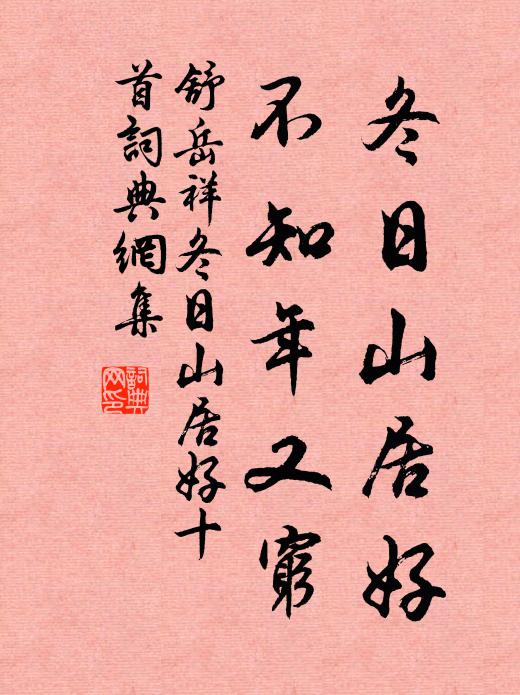 冬日山居好
不知年又窮
舒岳祥冬日山居好十
首詞典網集
詞典
网印